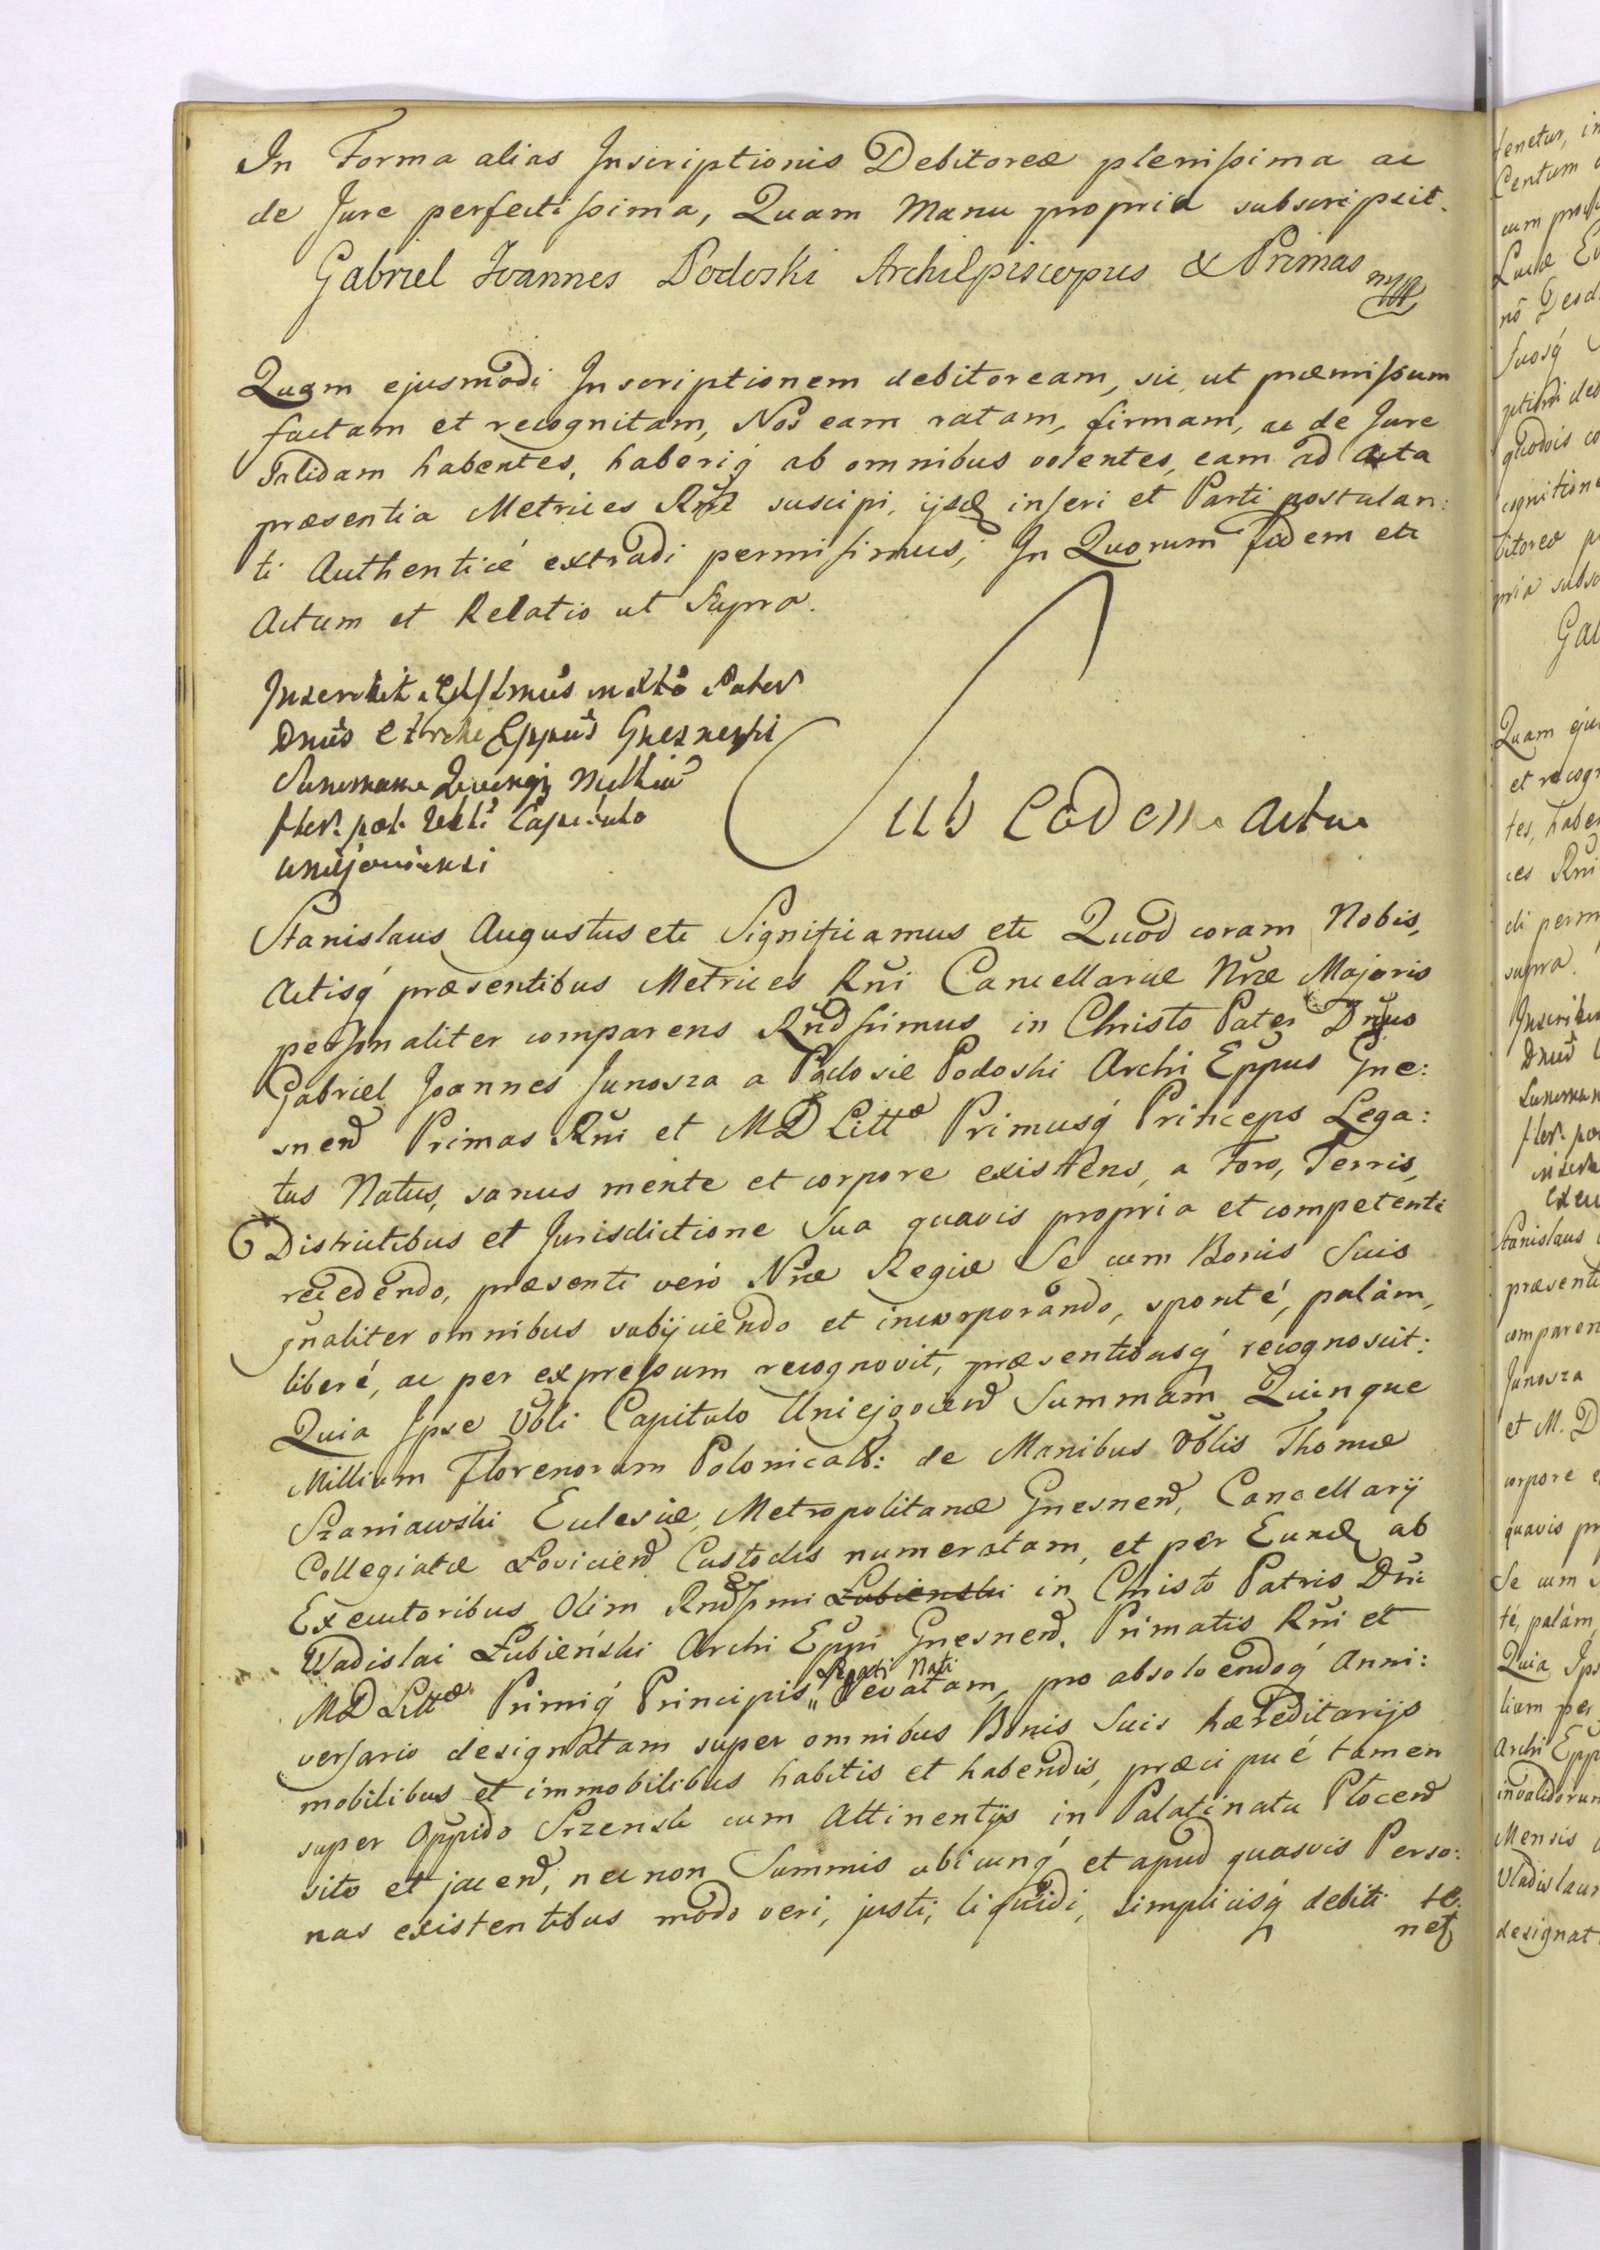 In Forma alias Inscriptionis Debitoreæ plenissima ac
de Jure perfectissima, Quam Manu propria subscripsit.
Gabriel Joannes Podoski ArchiEpiscopus & Primas mpp
Quam ejusmodi Inscriptionem debitoream, sic, ut præmissum
factam et recognitam, Nos eam ratam, firmam, ac de Jure
validam habentes, haberiq́ ab omnibus volentes, eam ad Acta
præsentia Metrices Rñi suscipi, ijsq inseri et Parti postulan:
ti Authenticé extradi permisimus; In Quorum fidem etc
Actum et Relatio ut Supra.
Inscribit Clssimus in Xto Pater
Dnus Archi Eppus Gnesnensi
Summam Quinq Millia
flor. pol. Vbli Capitulo
Uniejoviensi
Sub Eodem Actu
Stanislaus Augustus etc Significamus etc Quod coram Nobis,
Actisq́ præsentibus Metrices Rñi Cancellariæ Nræ Majoris
personaliter comparens Rñdssimus in Christo Pater Dñus
Gabriel Joannes Junosza a Podosie Podoski Archi Eppus Gne:
snen Primas Rñi et MD Littæ Primusq́ Princeps Lega:
tus Natus, sanus mente et corpore existens, a Foro, Terris,
Districtibus et Jurisdictione Sua quavis propria et competenti
recedendo, præsenti veró Nræ Regiæ Se cum Bonis Suis
gñaliter omnibus subijciendo et incorporando, sponté, palám,
liberé, ac per expressum recognovit, præsentibusq́ recognoscit:
Quia Ipse Vbli Capitulo Uniejovien Summam Quinque
Millium Florenorum Polonical: de Manibus Vblis Thomæ
Szaniawski Ecclesiæ, Metropolitanæ Gnesnen, Cancellarij
Collegiatæ Lovicien Custodis numeratam, et per Eund ab
Executoribus Olim Rndssmi Łubienski in Christo Patris Dñi
Wladislai Łubieński Archi Eppi Gnesnen. Primatis Rñi et
MD Littæ Primiq́ Principis, Legati Nati levatam, pro absolvendoq́ Anni:
versario designatam super omnibus Bonis Suis hæreditarijs
mobilibus et immobilibus habitis et habendis, præcipué tamen
super Oppido Srzensk cum Attinentijs in Palatinatu Plocen
sito et jacen, nec non Summis ubicunq́ et apud quasvis Perso:
nas existentibus modo veri, justi, liquidi, simplicisq́ debiti te:
net